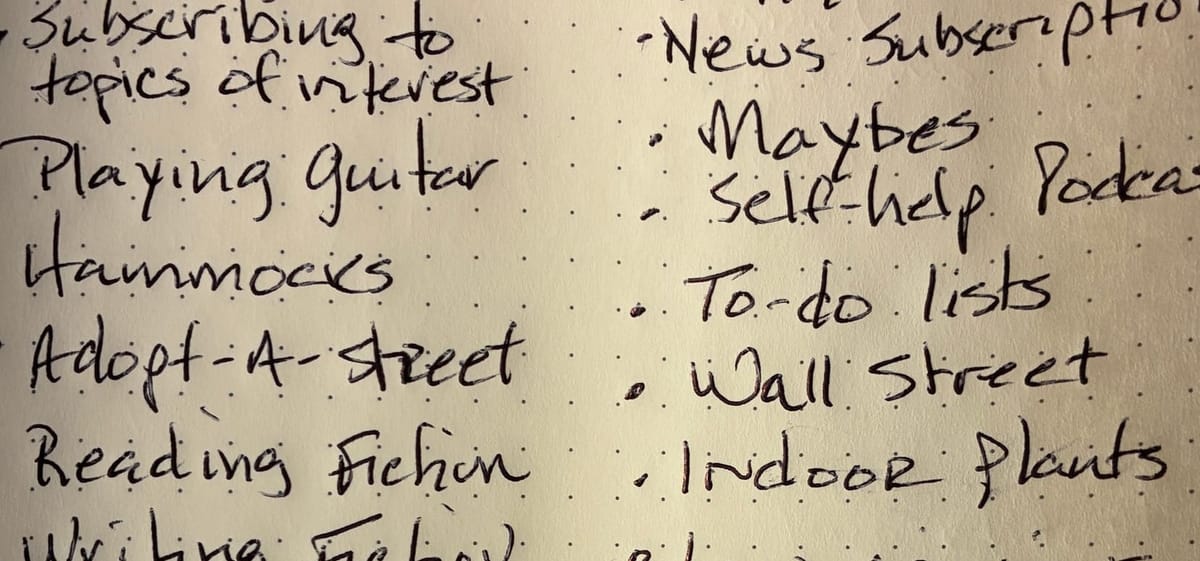 Subscribing to
topics of interest
Playing guitar
Hammocks
Adopt-A-Street
Reading Fiction
Writing
• News Subscriptio
• Maybes
• Self-help Podca
• To-do lists
• Wall Street
• Indoor plants